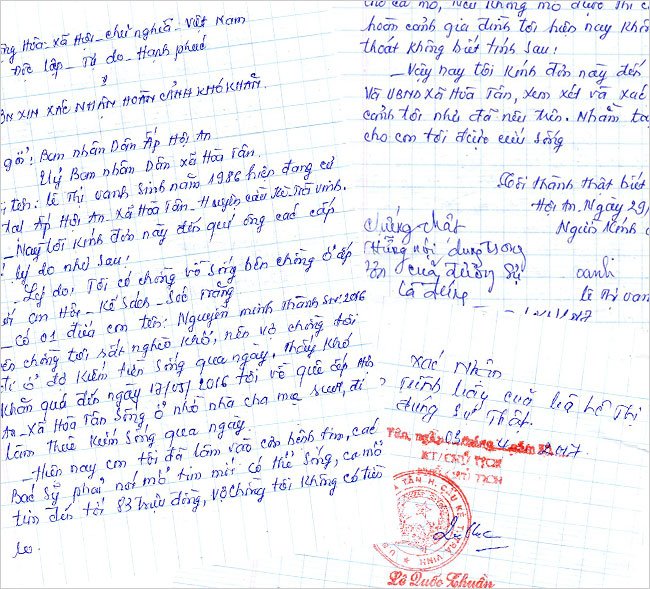 ng Hòa - Xã Hội - chủ nghĩa - Việt Nam
Độc lập - Tự do - Hạnh phúc
ƠN XIN XÁC NHẬN HOÀN CẢNH KHÓ KHĂN.
gởi: Ban nhân Dân Ấp Hội An
Uỷ Ban nhân Dân xã Hòa Tân.
tên: Lê Thị vanh Sinh năm 1986 hiện đang cư
tại Ấp Hội An - Xã Hòa Tân - Huyện cầu Kè - Trà Vinh.
- Nay tôi kính đơn này đến quí ông các cấp
lý do như sau!
Lý do: Tôi có chồng về sống bên chồng ở ấp
An Hội - Kế Sách - Sóc Trăng
- Có 01 đứa con tên: Nguyễn minh thành SN: 2016
bên chồng tôi rất nghèo khó, nên vợ chồng tôi
ở đó kiếm tiền sống qua ngày, thấy khó
khăn quá đến ngày 12/05/2016 tôi về quê ấp Hội
An - Xã Hòa Tân sống ở nhờ nhà cha mẹ ruột, đi
làm thuê kiếm sống qua ngày.
- hiện nay con tôi đã lâm vào căn bệnh tim, các
Bác Sỹ phải nơi mổ tim mới có thể sống, ca mổ
tim đến tới 83 triệu đồng, vợ chồng tôi không có tiền
lo.
cho ca mổ, nếu không mổ được thì
hoàn cảnh gia đình tôi hiện nay khôn
thoát không bút tính sau!
- Vậy nay tôi kính đơn này đến
Và UBND Xã Hòa Tân, xem xét và xác
cảnh tôi như đã nêu trên. Nhằm tạ
cho con tôi được cứu sống
Tôi thành thật biết
Hội An. Ngày 29/
Người kính
chứng thật
những nội dung trong
đơn của đương sự
là đúng
canh
Lê Thị van
Xác Nhận
Trình bày của bà Lê Thị
đúng sự thật.
Tân, ngày 03 tháng 4 năm 2017
KT/CHỦ TỊCH
PHÓ CHỦ TỊCH
TÂN H. CẦU KÈ T. TRÀ VINH
Lê Quốc Thuần